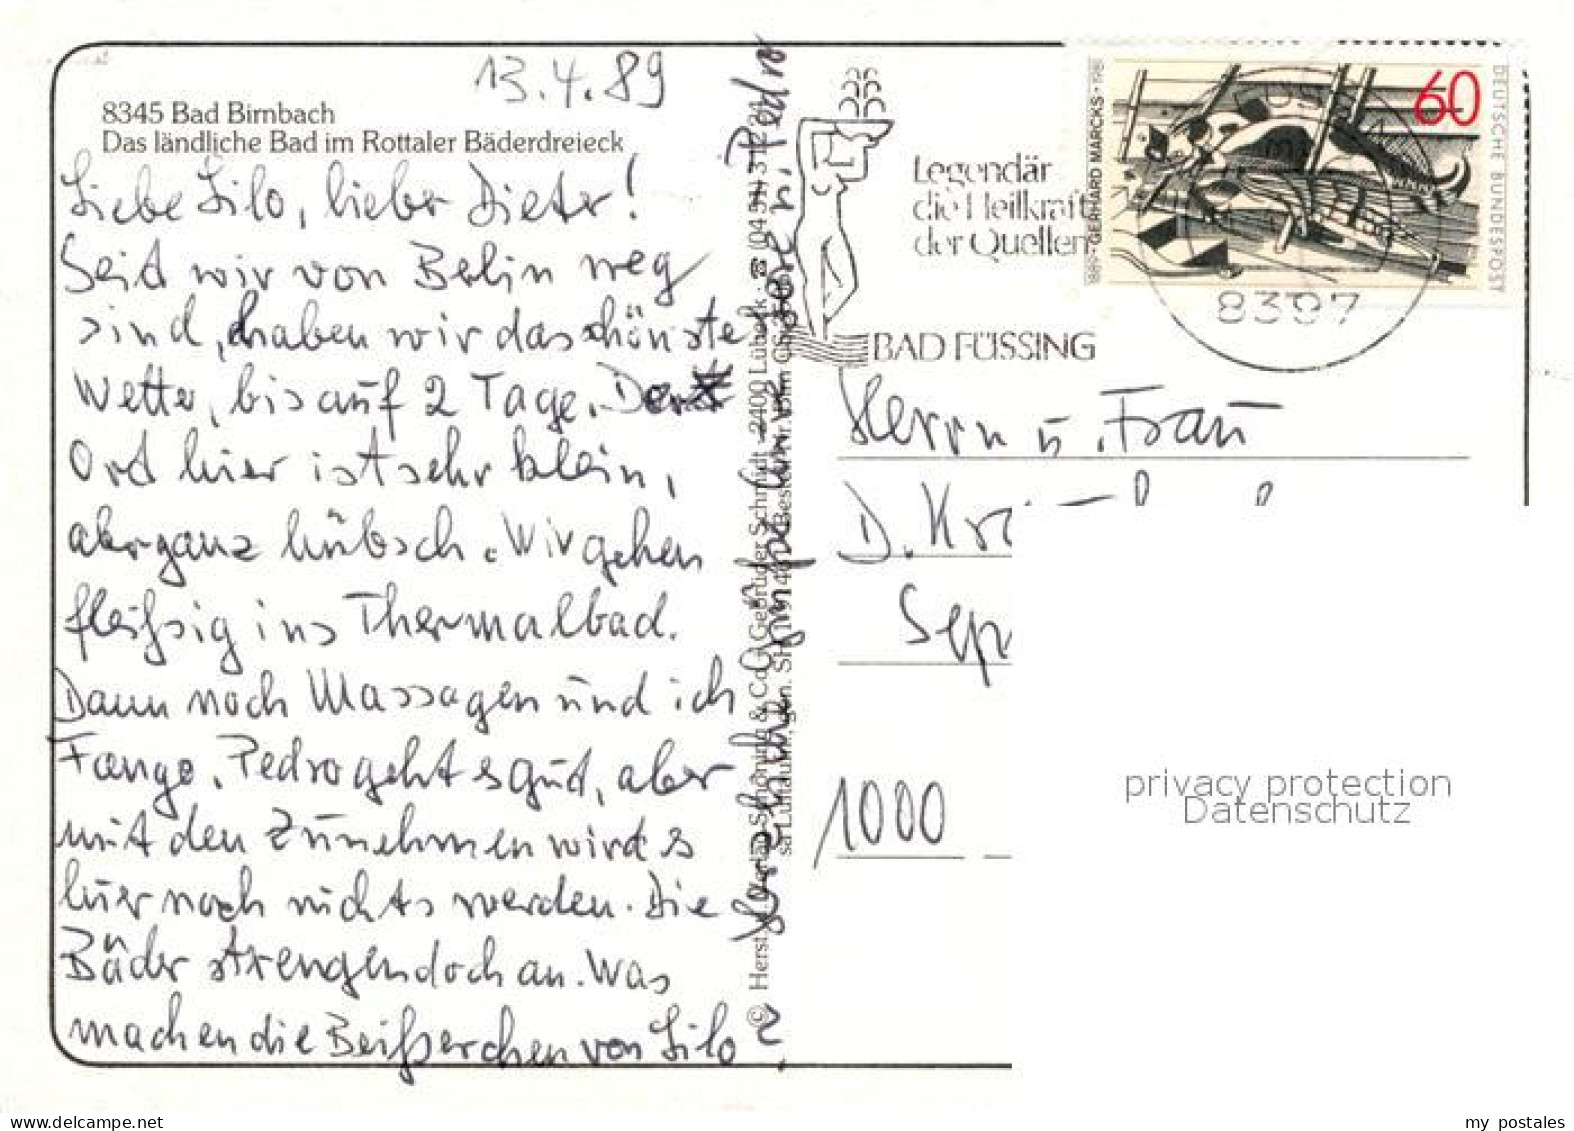 13.4.89
8345 Bad Birnbach
Das ländliche Bad im Rottaler Bäderdreieck
Liebe Lilo, lieber Dieter!
Seit wir von Berlin weg
sind, haben wir das schönste
Wetter, bis auf 2 Tage. Der
Ort hier ist sehr klein,
aber ganz hübsch. Wir gehen
fleißig ins Thermalbad.
Dann noch Massagen und ich
Fango. Pedro geht es gut, aber
mit dem Zunehmen wird es
hier noch nichts werden. Die
Bäder strengen doch an. Was
machen die Beißerchen von Lilo?
Herzliche Grüße
u. Pedro
© Herst. u. Verlag Schöning & Co + Gebrüder Schmidt · 2400 Lübeck · ☎ (0451) 31
Legendär
die Heilkraft
der Quellen
BAD FÜSSING
8397
1889 - GERHARD MARCKS - 1981
60
DEUTSCHE BUNDESPOST
Herrn u. Frau
D.
1000
privacy protection
Datenschutz
my postales
www.delcampe.net